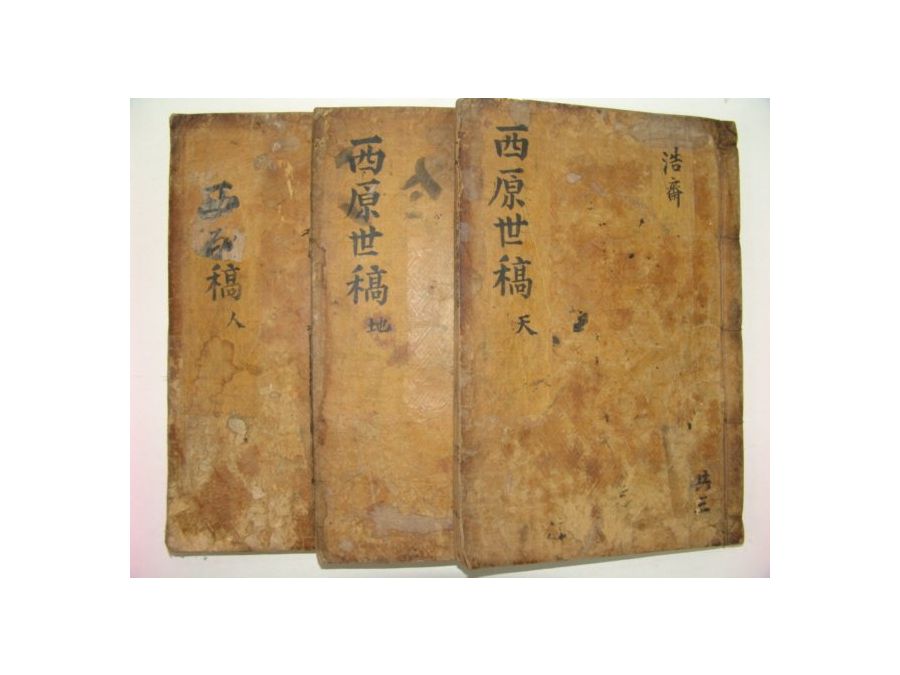 浩齋
共三
西原世稿
天
西原世稿
地
稿
人